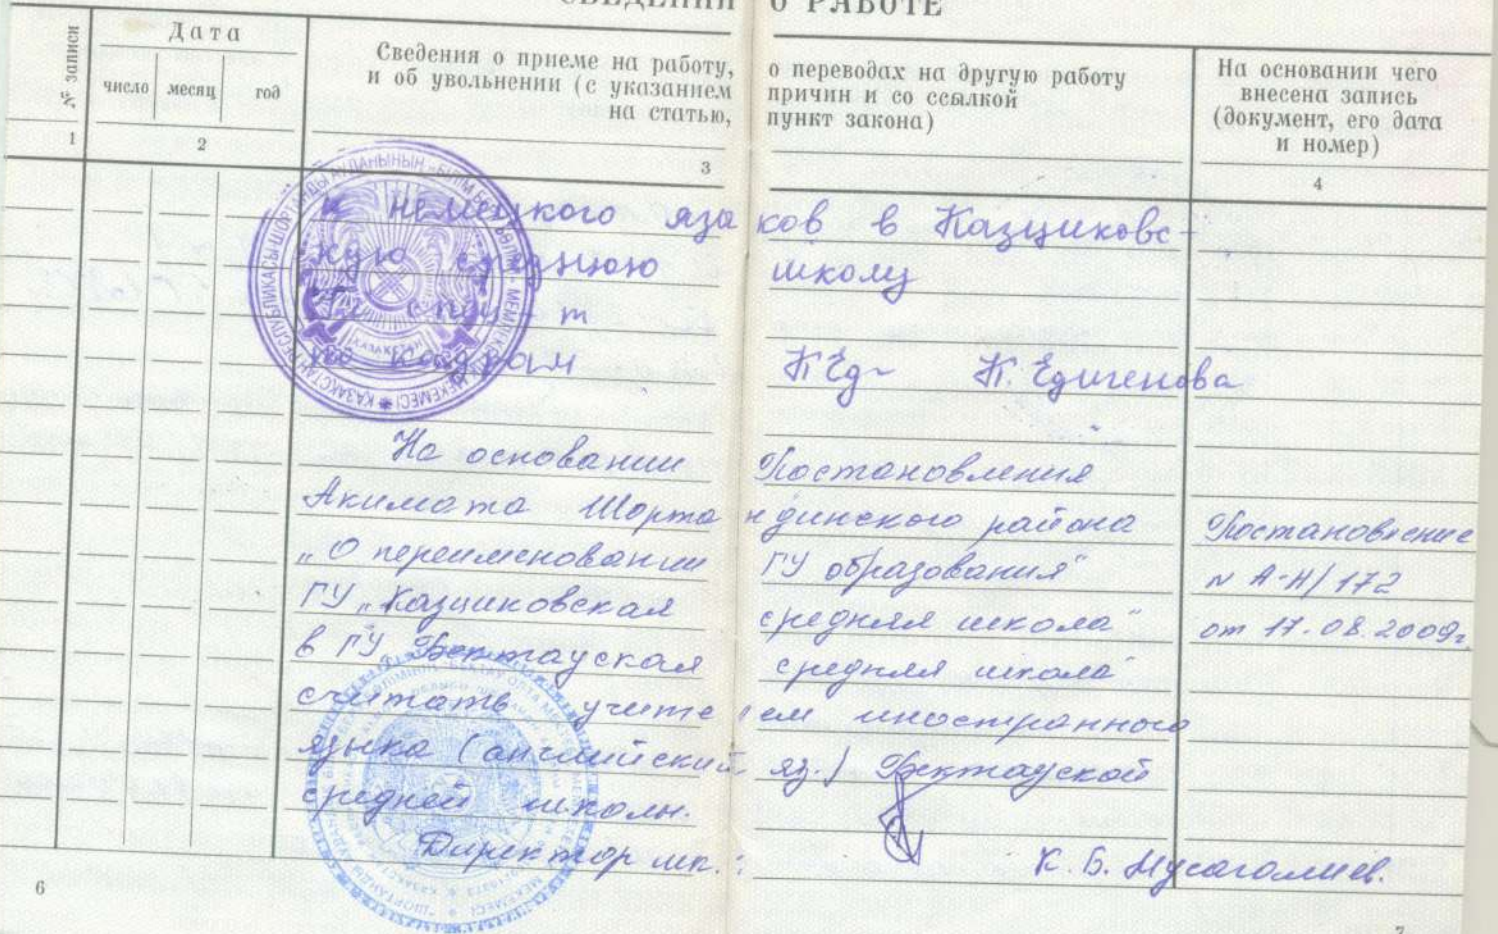 СВЕДЕНИЯ О РАБОТЕ
№ записи
Дата
число месяц год
Сведения о приеме на работу, о переводах на другую работу
и об увольнении (с указанием причин и со ссылкой
на статью, пункт закона)
На основании чего
внесена запись
(документ, его дата
и номер)
1 2 3 4
и немецкого языков в Казциковс-
кую среднюю школу
по кадрам К. Едигенова
На основании Постановления
Акимата Шортандинского района
„О переименовании ГУ образования"
ГУ „Казциковская средняя школа"
в ГУ „Бектауская средняя школа"
считать учителем иностранного
языка (английский яз.) Бектауской
средней школы.
Директор шк.: К. Б. Мусагалиев.
Постановление
N А-Н/172
от 17.08.2009г.
ҚАЗАҚСТАН
6
7